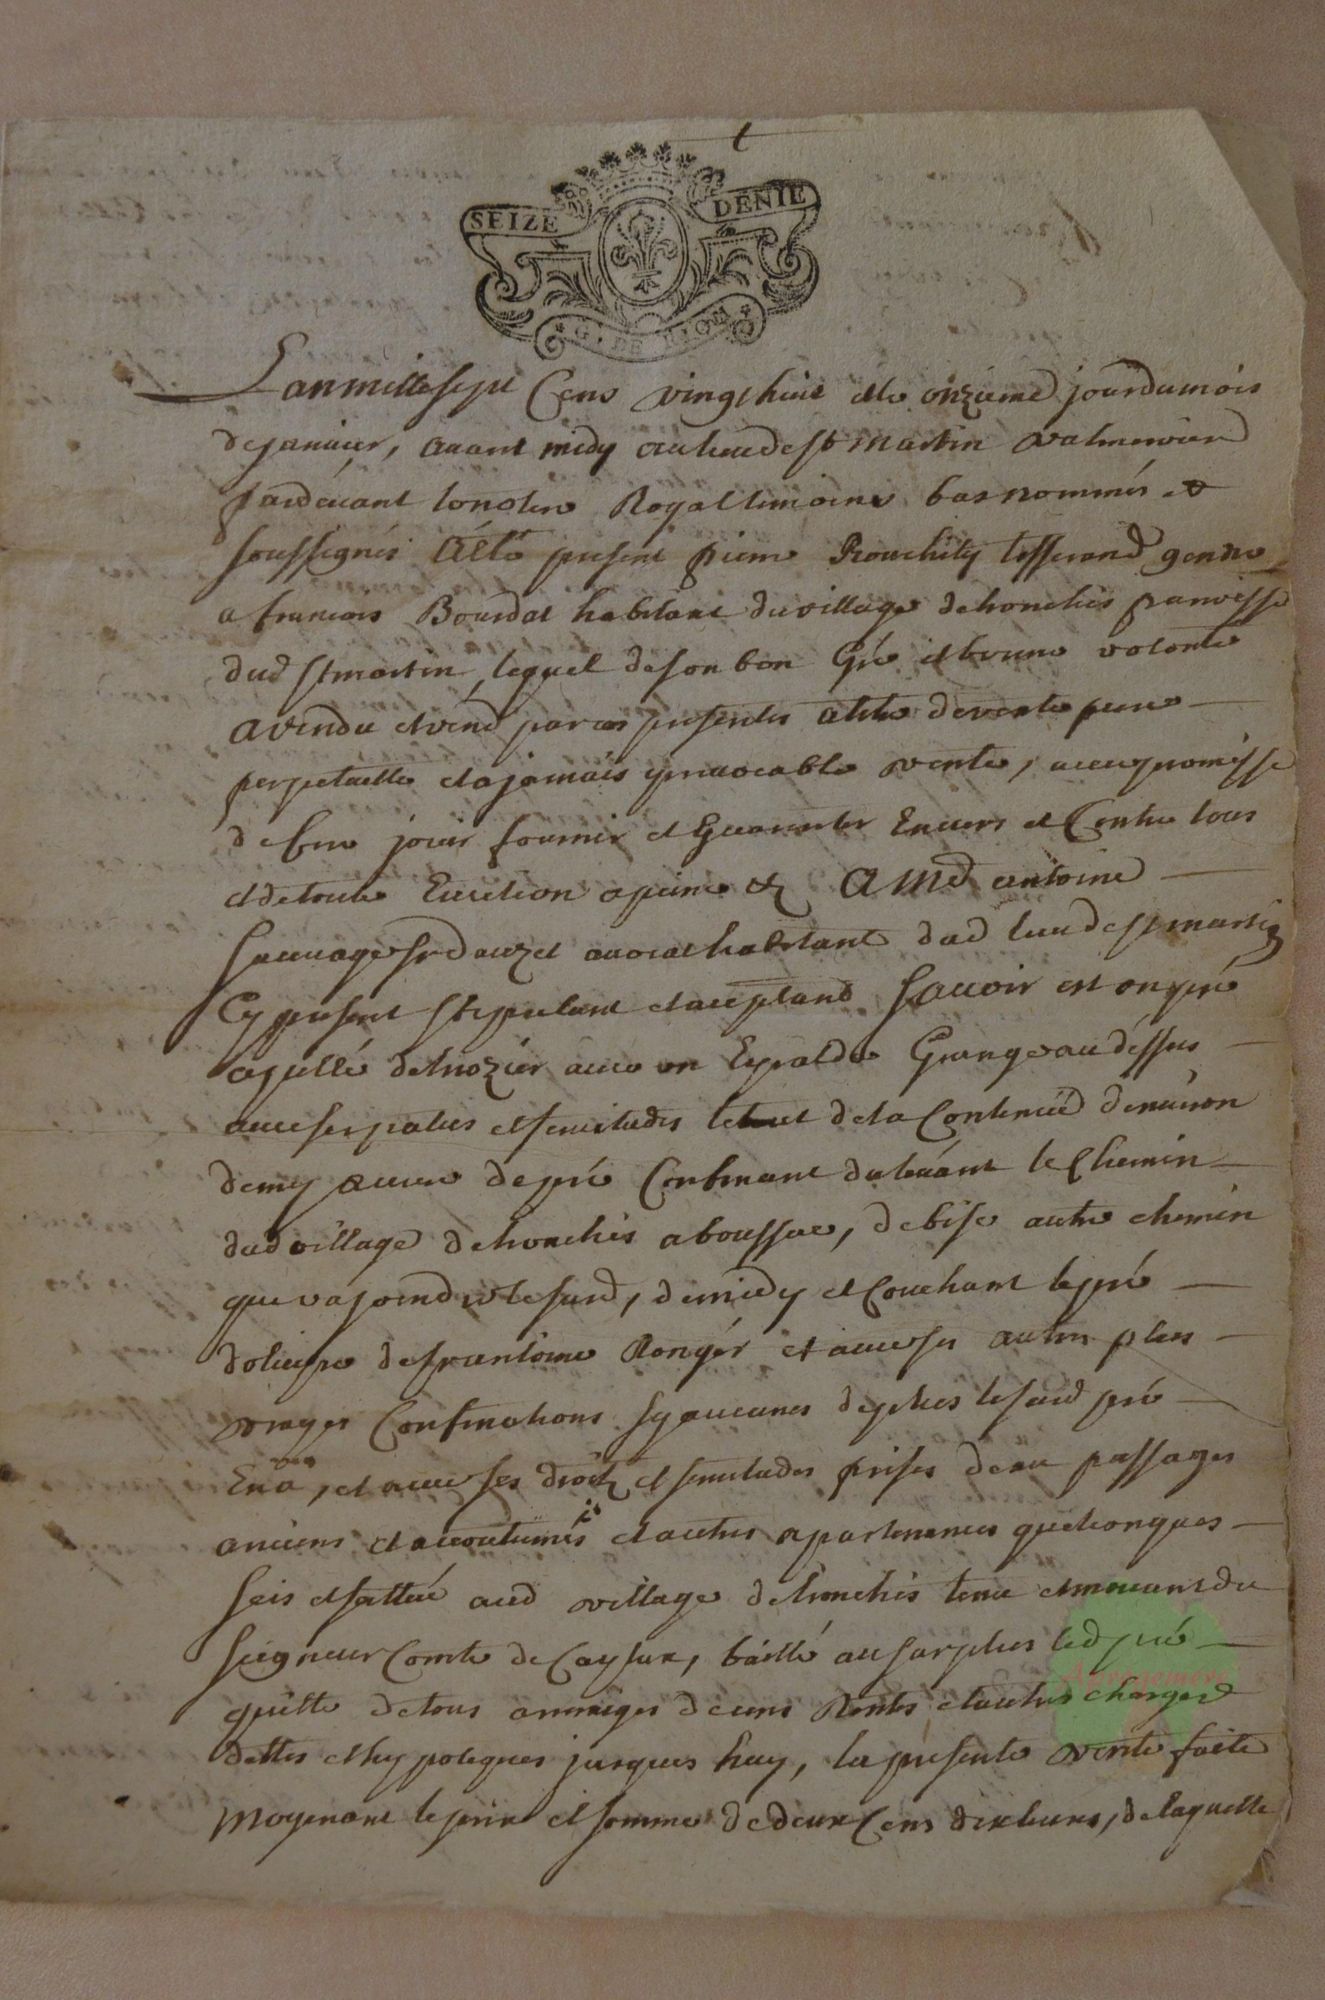 SEIZE DENIE
G. DE RIOM
Lan mille sept Cens vingt huit et le onzieme jour du mois
de janvier, avant midy au lieu de st martin valmeroux
pardevant le notere Royal temoins bas nommés et
soussignés A été present pierre tisserand gendre
a francois Bourdat habitant du village de honchis parroisse
dud st martin, lequel de son bon Gré et bonne volonté
a vendu et vend par ces presentes a titre de vente pure
perpetuelle et a jamais yrrevocable vente, avec promesse
de fere jouir fournir et Guarantir Envers et Contre tous
et de toute Eviction a peine &c A Me antoine
Sauvage sr dauzet avocat habitant dud lieu de st martin
Cy present stipulant et aceptand Scavoir est un pré
apellé delnozier avec un de Grange au dessus
avec ses patus et servitudes le tout de la Contenue denviron
demy de pré Confinant du levant le Chemin
dud village dehonchis a boussac, de bise autre chemin
que va joindre le susd, de midy et Couchant le pré
de antoine Rongér et avec ses autres plus
vrayes Confinations sy aucunes de plus lesusd pré
En a, et avec ses droits et servitudes prises deau passages
anciens et accoutumés et autres apartenances quelconques
sis et sittué aud village dehonchis tenu et mouvant du
seigneur Comte de Caylux, baillé au surplus led pré
quitte de tous arrerages de cens Rentes et autres charges
dettes et hypoteques jusques huy, la presente vente faite
Moyenant le prix et somme de deux Cens dix livres, de laquelle
Auvergne